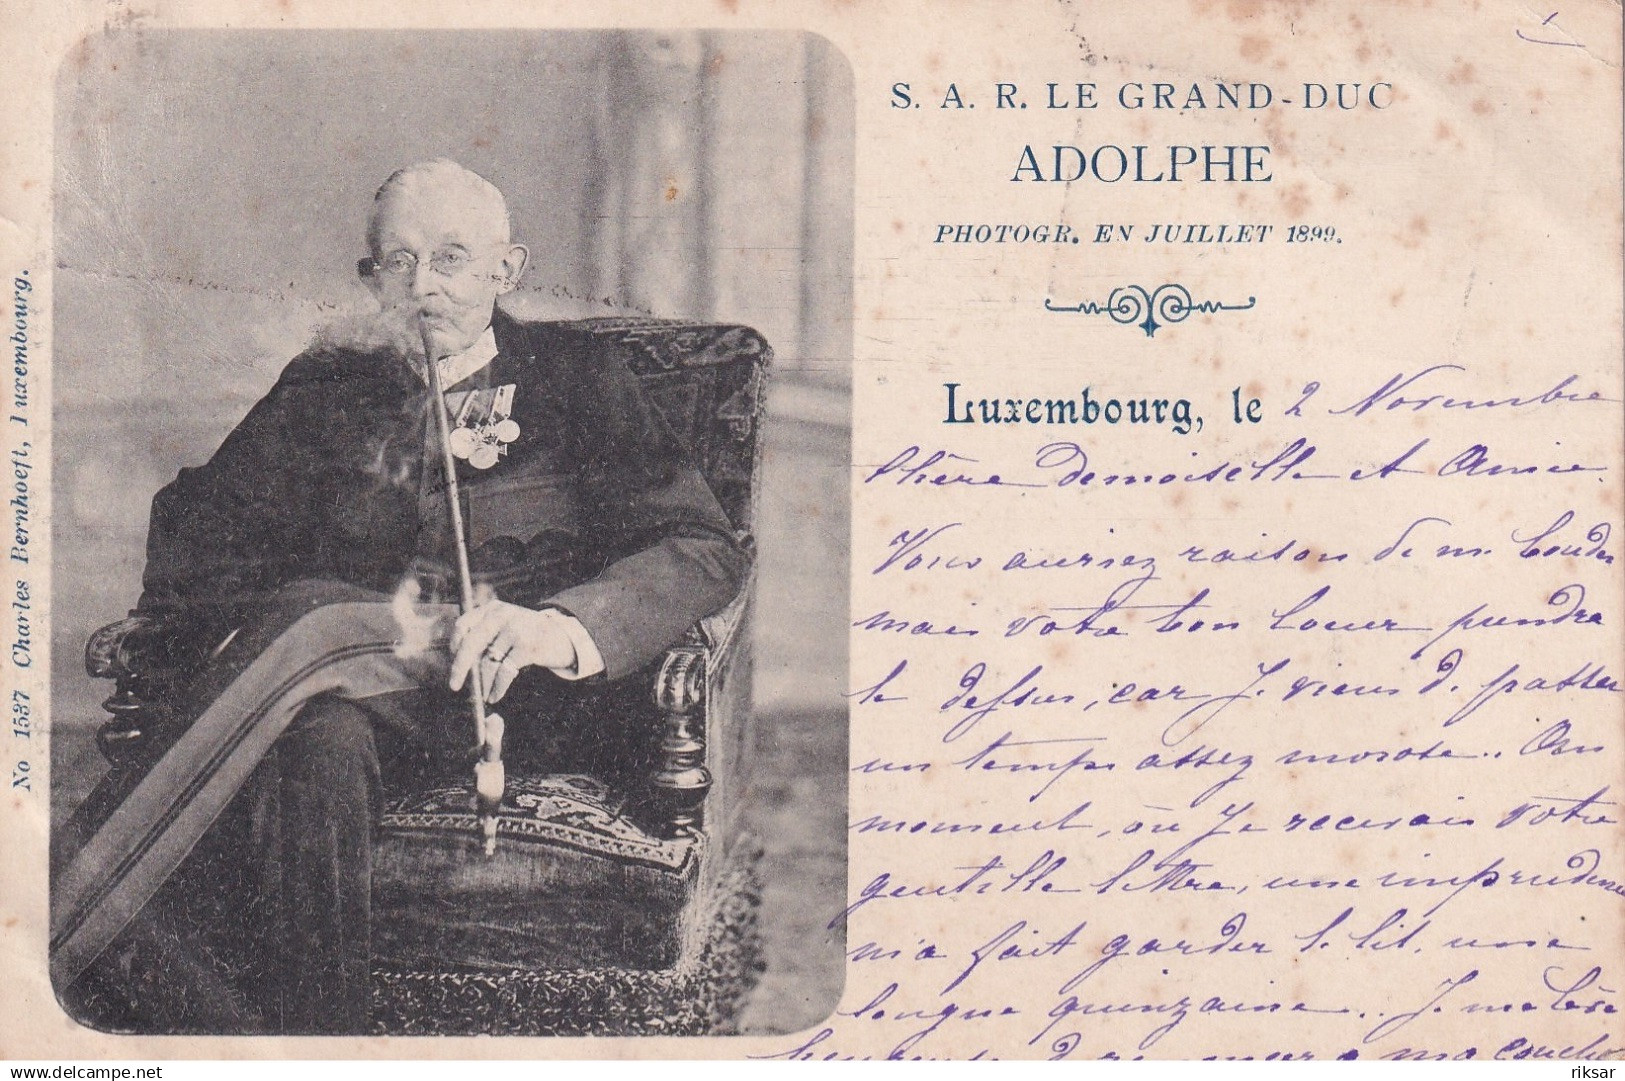 S. A. R. LE GRAND-DUC
ADOLPHE
PHOTOGR. EN JUILLET 1899.
Luxembourg, le 2 Novembre
Chère Demoiselle et Amie.
Vous auriez raison de me bouder
mais votre bon coeur
le dessus, car Je viens de passer
un temps assez morose. Au
moment, où Je recevais votre
gentille lettre, une imprudence
m'a fait garder le lit, une
longue quinzaine.. Je
No 1537 Charles Bernhoeft, Luxembourg.
delcampe.net
riksar